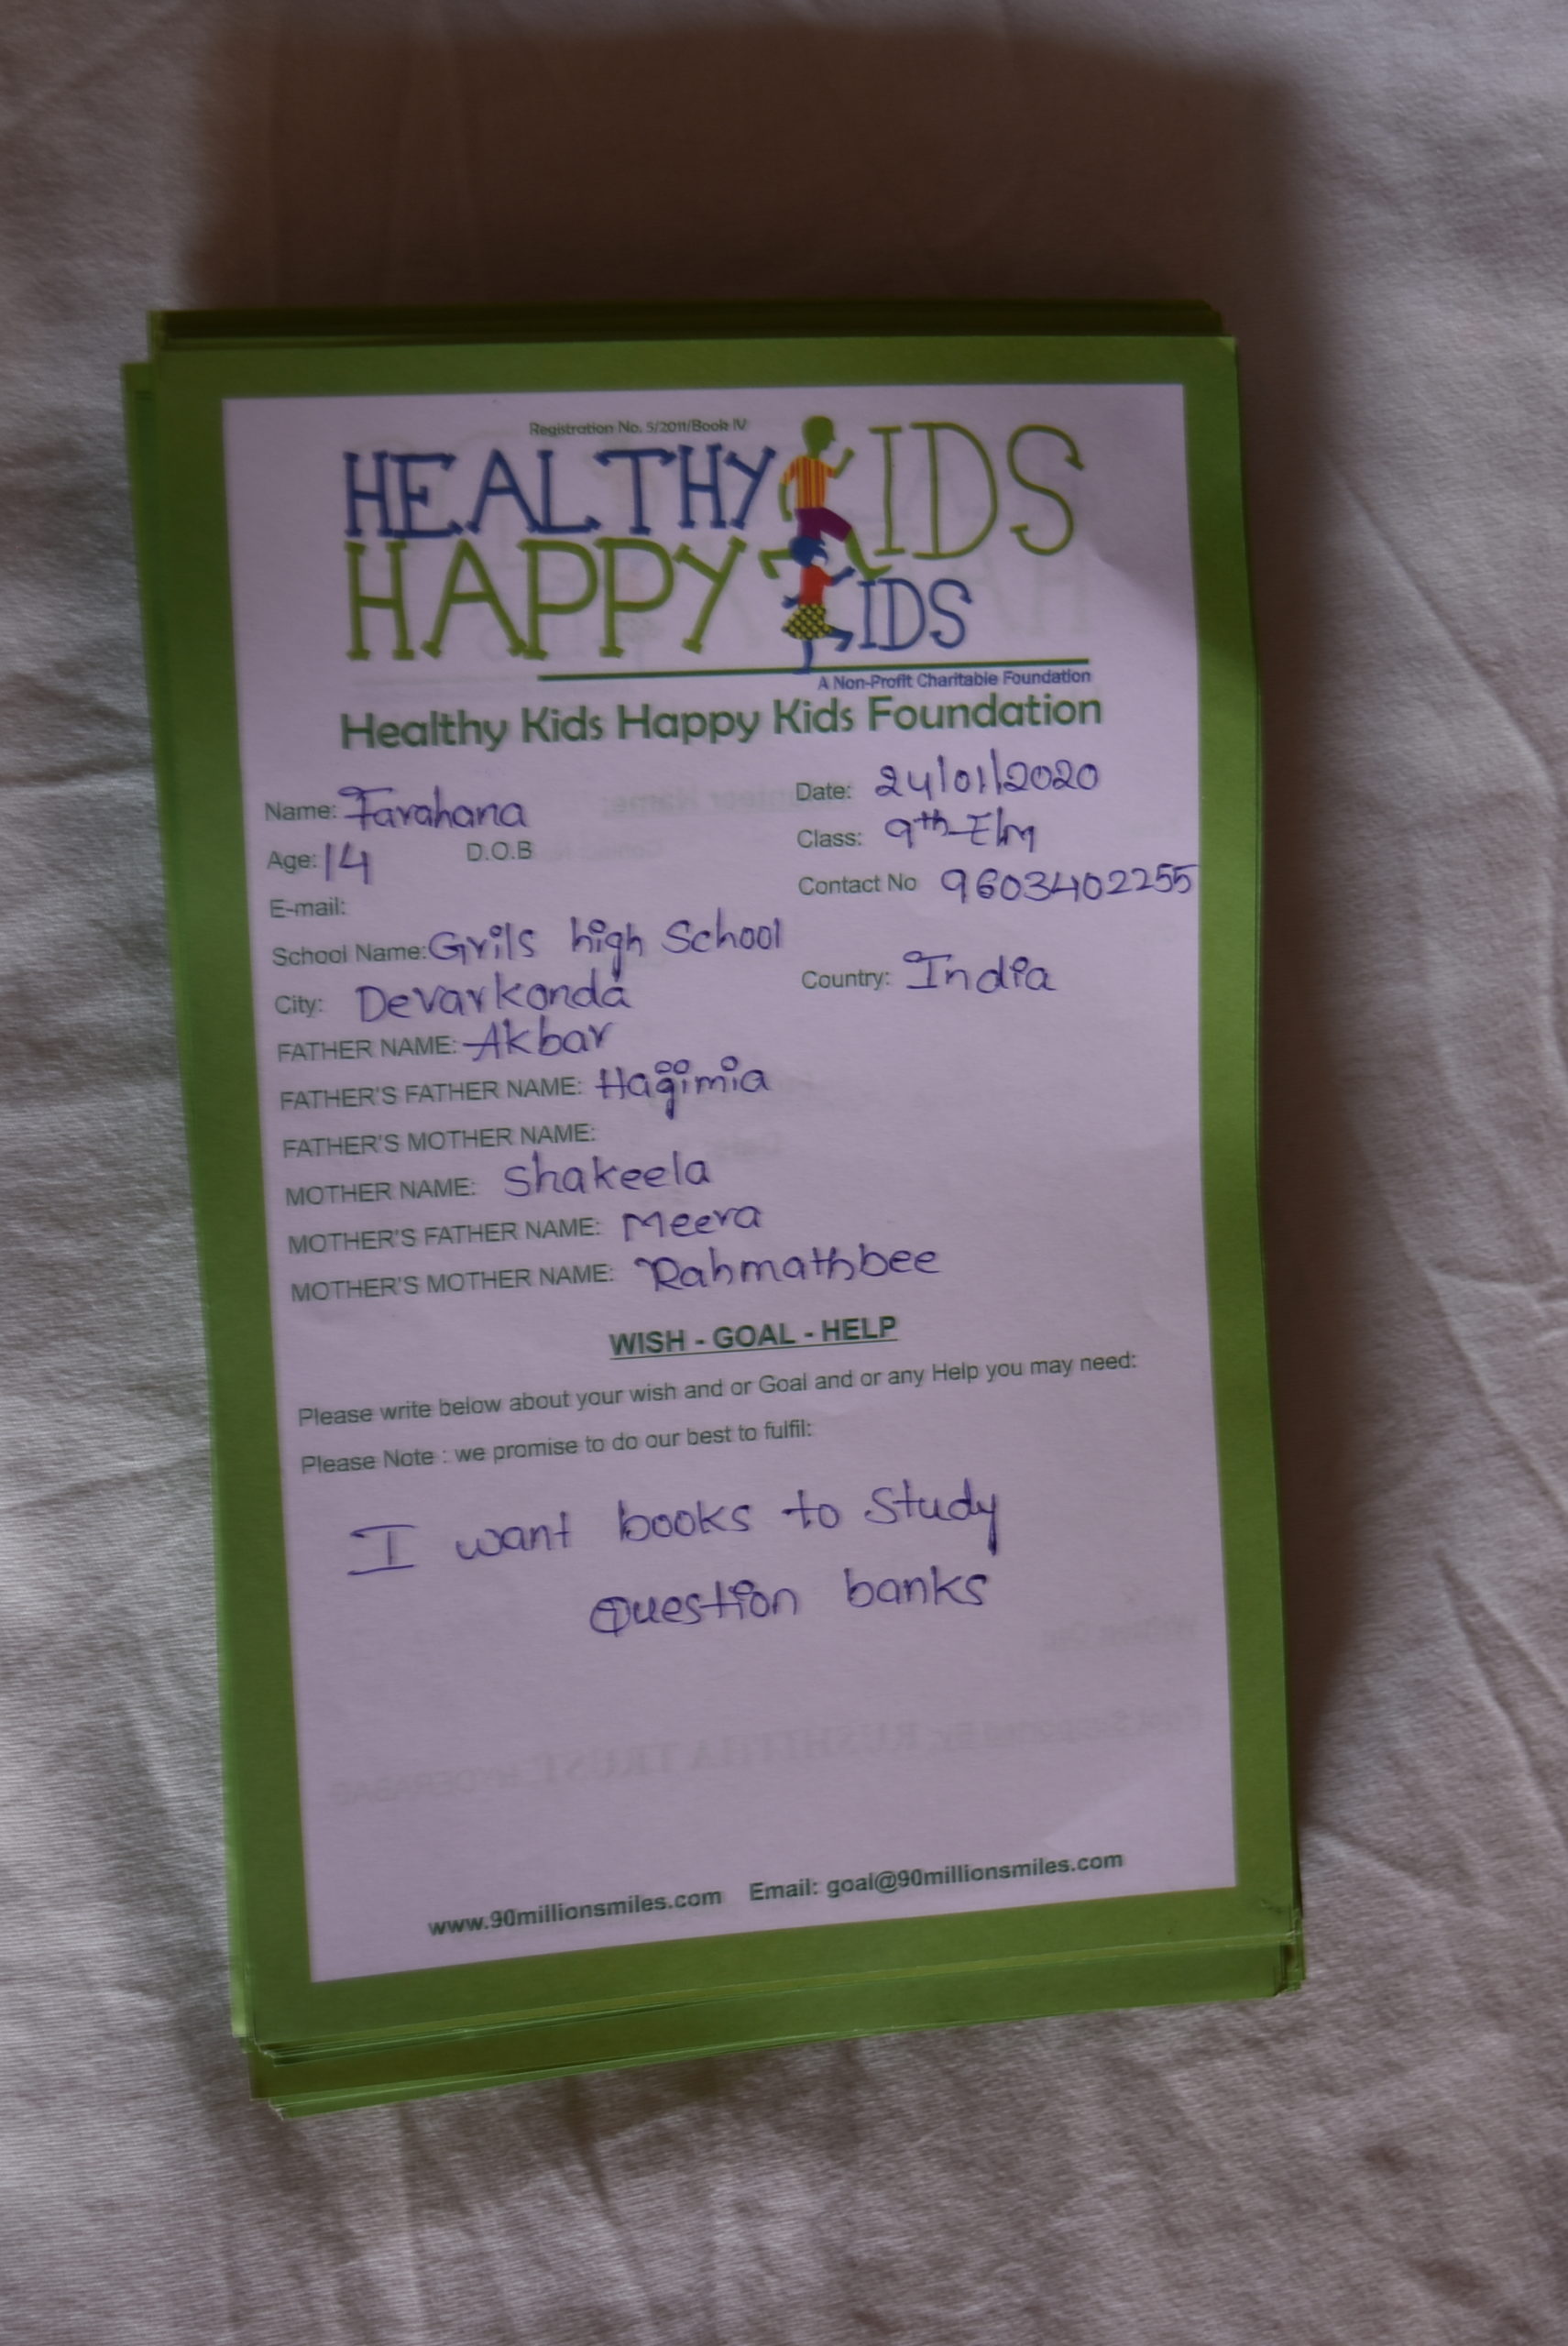 Registration No. 5/2011/Book IV
HEALTHY KIDS
HAPPY KIDS
A Non-Profit Charitable Foundation
Healthy Kids Happy Kids Foundation
Name: Farahana Date: 24/01/2020
Age: 14 D.O.B Class: 9th E/m
E-mail: Contact No 9603402255
School Name: Grils high School
City: Devarkonda Country: India
FATHER NAME: Akbar
FATHER'S FATHER NAME: Hagimia
FATHER'S MOTHER NAME:
MOTHER NAME: Shakeela
MOTHER'S FATHER NAME: Meera
MOTHER'S MOTHER NAME: Rahmathbee
WISH - GOAL - HELP
Please write below about your wish and or Goal and or any Help you may need:
Please Note : we promise to do our best to fulfil:
I want books to Study
Question banks
www.90millionsmiles.com Email: goal@90millionsmiles.com